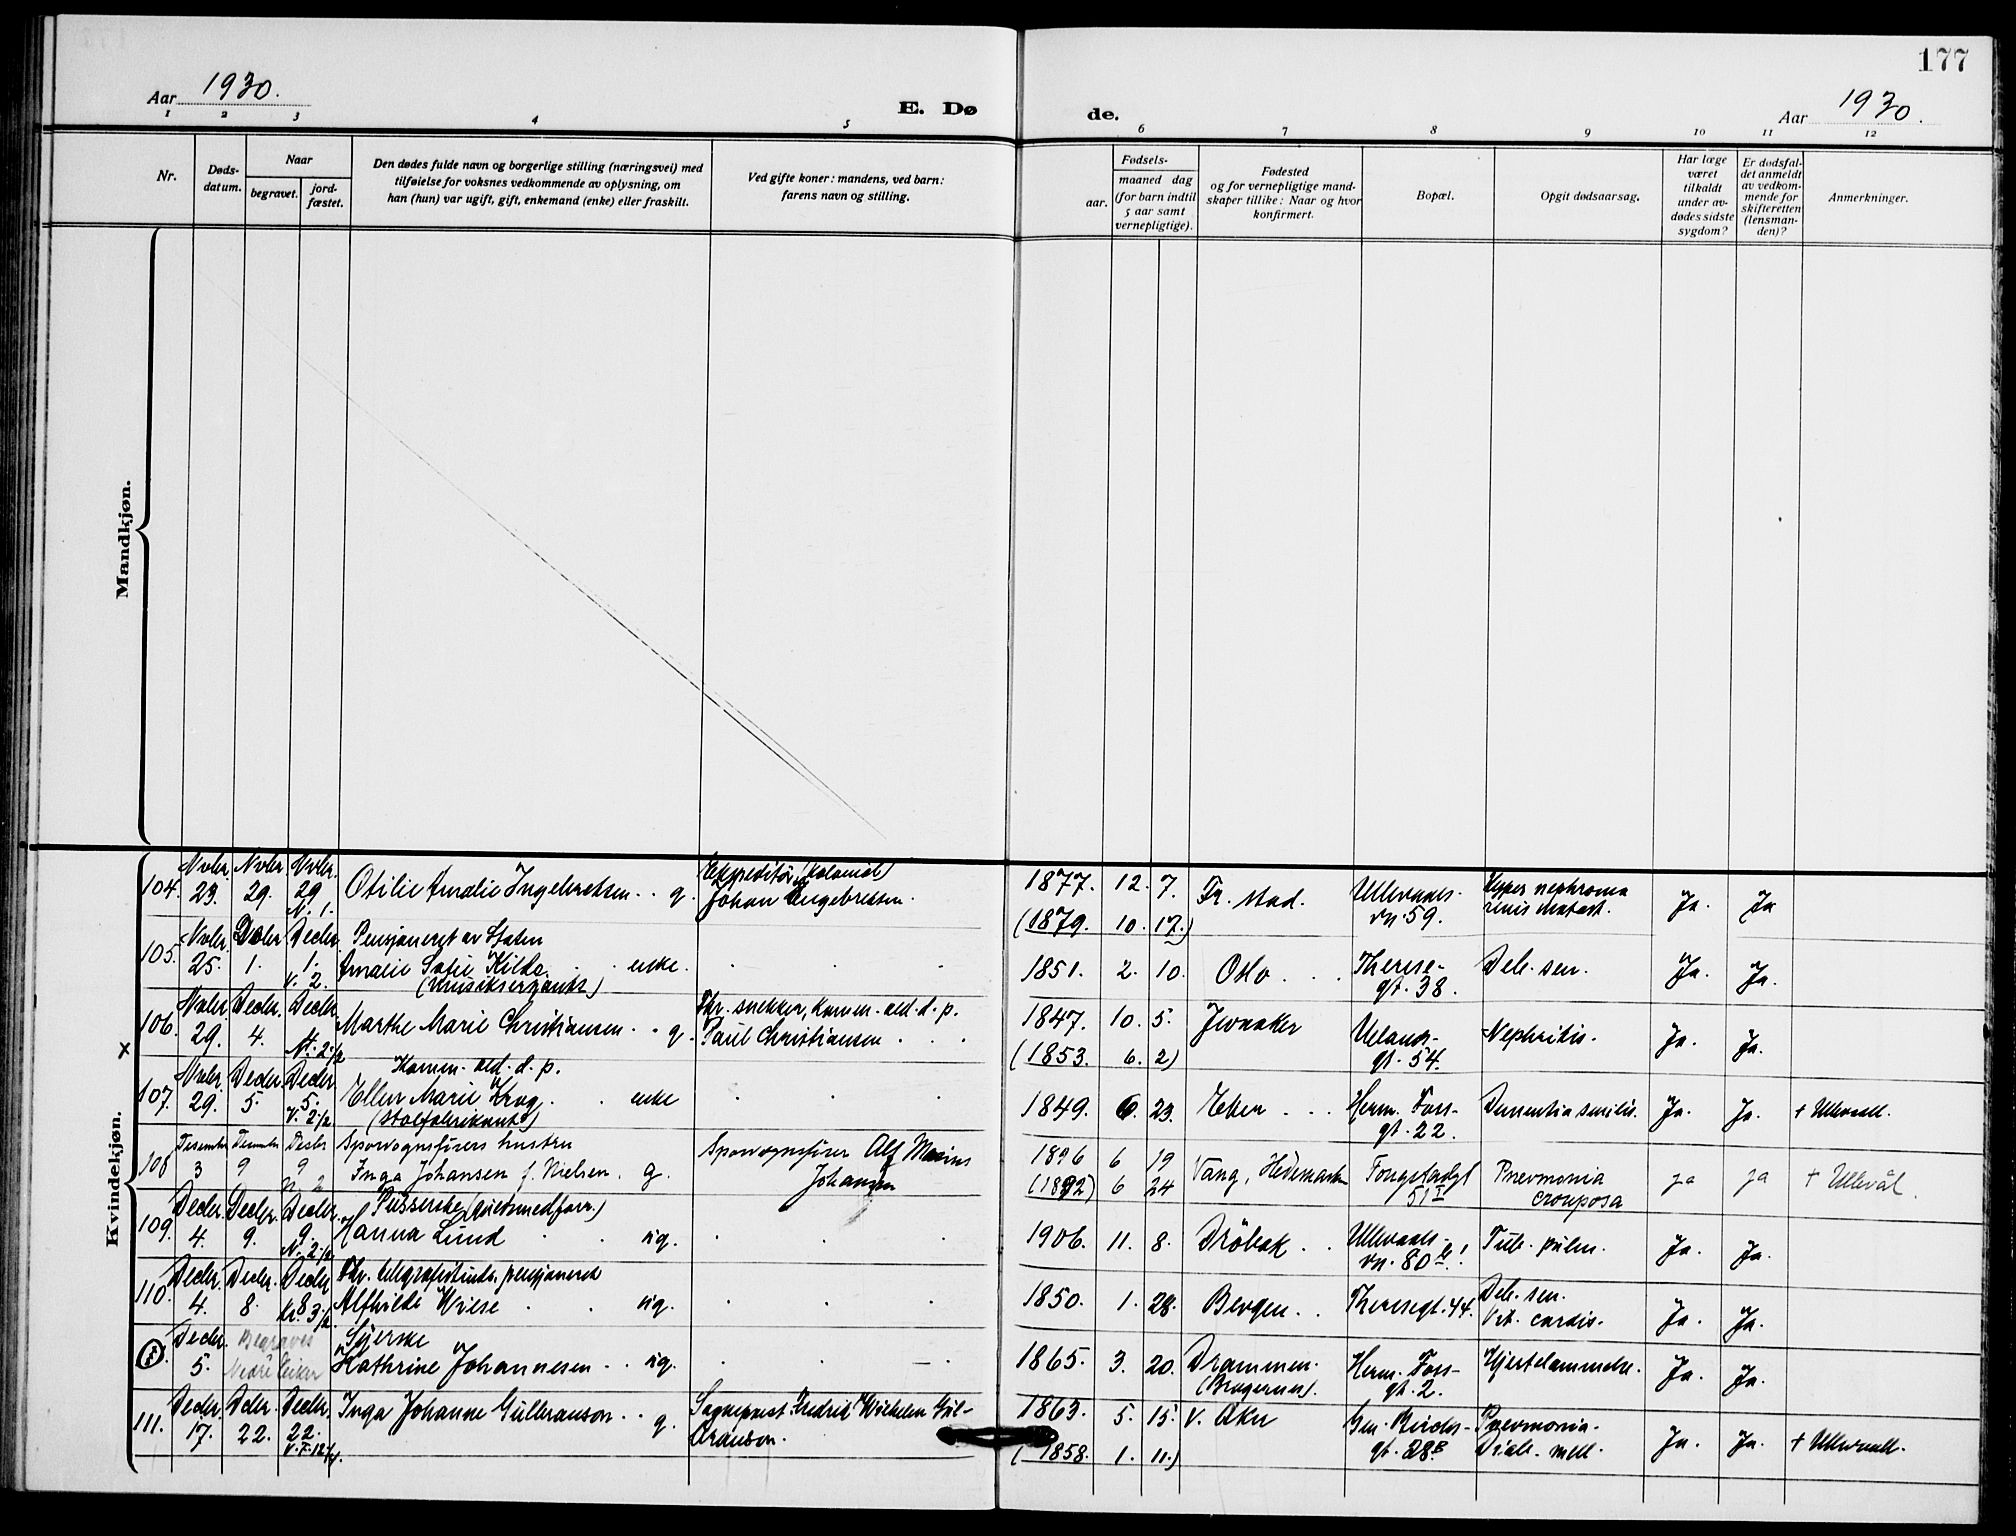 177
Aar 1930.
E. Dø
de.
Aar 1930.
1 2 3 4 5 6 7 8 9 10 11 12
Nr.
Døds-
datum.
Naar
begravet.
jord-
fæstet.
Den dødes fulde navn og borgerlige stilling (næringsvei) med
tilføielse for voksnes vedkommende av oplysning, om
han (hun) var ugift, gift, enkemand (enke) eller fraskilt.
Ved gifte koner: mandens, ved barn:
farens navn og stilling.
Fødsels-
aar.
maaned dag
(for barn indtil
5 aar samt
vernepligtige).
Fødested
og for vernepligtige mand-
skaper tillike: Naar og hvor
konfirmert.
Bopæl.
Opgit dødsaarsag.
Har læge
været
tilkaldt
under av-
dødes sidste
sygdom?
Er dødsfal-
det anmeldt
av vedkom-
mende for
skifteretten
(lensman-
den)?
Anmerkninger.
Mandkjøn.
Kvindekjøn.
Nvbr. Nvbr. Nvbr. Expeditør (kolonial)
104. 23. 29. 29 Otilie Amalie Ingebretsen . . g. Johan Engebretsen. 1877. 12. 7. Fr. stad. Ullevaals- Hyper nephroma
N. 1. (1879. 10. 17.) vn. 59. renis metast. Ja. Ja
Nvbr. Decbr. Decbr. Pensjoneret av Staten
105. 25. 1. 1. Amalie Sofie Kildal . . enke. 1851. 2. 10. Oslo . . Therese- Deb. sen. Ja. Ja.
V. 2. (Musiksergeants) gt. 38.
Nvbr. Decbr. Decbr. Fhr. snekker, komm. ald. d. p.
106. 29. 4. Marthe Marie Christiansen . . g. Paul Christiansen . . . 1847. 10. 5. Jevnaker Uelands- Nephritis. Ja. Ja.
N. 2 1/2 (1853. 6. 2) gt. 54.
x
Nvbr. Decbr. Decbr. Komm. ald. d. p.
107. 29. 5. 5. Ellen Marie Krog . . enke 1849. 6. 23. Eker . . . Herm. Foss- Dementia senilis. Ja. Ja. + Ullevaal.
V. 2 1/2 (Stolfabrikants) gt. 22.
Desember Desember Desbr Sporvognsførers hustru Sporvognsfører Alf Marius
108 3 9 9 Inga Johansen f. Nielsen . g. Johansen 1896 6 19 Vang, Hedemarken Fougstadgt Pnevmonia ja ja + Ullevål.
N 2 (1892) 6 24 51 I crouposa
Decbr. Decbr. Decbr. Pusserske
109. 4. 9. 9. Hanna Lund . . ug. 1906. 11. 8. Dröbak . . Ullevaals- Tub. pulm. Ja. Ja.
N. 2 1/2 vn. 80
Decbr. Decbr. Decbr Fhr. telegrafistinde, pensjoneret
110. 4. 8. 8 Alfhilde Wiese . . ug. 1850. 1. 28. Bergen . . Theresegt. 44. Deb. sen. Ja. Ja.
Kl. 3 1/2 Vit. cordis.
Decbr. Begraves Syerske
5. Nedre Eiker Kathrine Johannesen . . ug. 1865. 3. 20. Drammen. Herm. Foss- Hjertelammelse. Ja. Ja.
(Bragernes). gt. 2.
Decbr. Decbr. Decbr. Sogneprest Fredrik Wilhelm Gul-
111. 17. 22. 22. Inga Johanne Gulbranson . . g. branson. 1863. 5. 15. V. Aker Gen. Birchs- Pnevmonia. Ja. Ja. + Ullevaal.
(1858. 1. 11.) gt. 28 B Diab. mell.